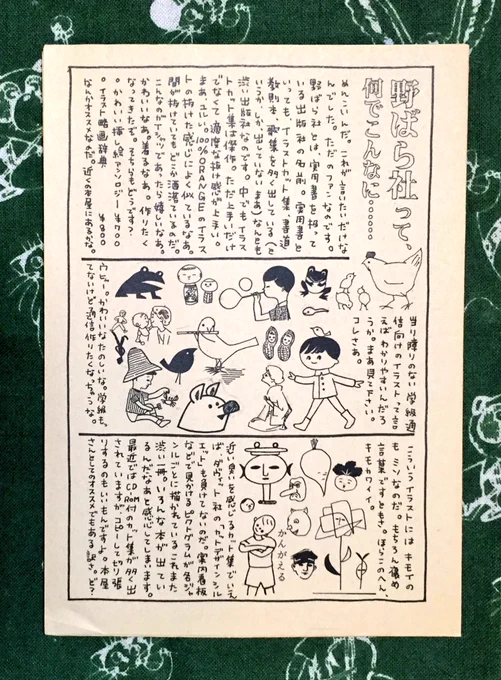 野ばら社って、
何でこんなに……
めんこいんだ。これが言いたいだけな
んでした。ただのファンなのです。
野ばら社とは、実用書を扱って
いる出版社の名前。実用書と
いっても、イラストカット集、書道
教則本、歌集を多く出している(と
いうかしか出していない、まあ)なんとも
渋い出版社なのです。中でもイラス
トカット集は傑作。ただ上手いだけ
でなくて適度な抜け感が上手い。
まあユルい。100% ORANGEのイラス
トの抜けた感じによく似ているなあ。
間が抜けていてもどこか洒落ているのだ。
こんなのがTシャツであったら嬉しいなあ。
かわいいなあ、着るなあ。作りたく
なってきたぞ。そちらもどうです?
。かわいい挿し絵アンソロジー ¥700
。イラスト略画辞典 ¥800
なんかオススメなのだ。近くの本屋にあるかな。
当り障りのない学級通
信向けのイラストって言
えばわかりやすいんだろ
うか。まあ見て下さい。
コレさあ。
ウヒョー。かわいいなたのしいな。学級も
てないけど通信作りたくなっちゃうな。
こういうイラストには キモイの
もミソなのだ。もちろん褒め
言葉ですともさ。ほらこのへん、
キモカワイイ。
かんがえる
近い臭いを感じるカット集でいえ
ば、ダヴィッド社のカットデザインシル
エットも負けてないのだ。案内看板
などで見かけるピクトグラムが各ジャ
ンルごとに描かれているこれまた
渋い一冊。いろんな本が出てい
るんだなあと感心してしまいます。
最近ではCD-ROM付のカット集が多く出
されていますが、コピーして切り張
りするのもいいもんですよ。本屋
さんとしてのオススメでもある訳さ。ど?